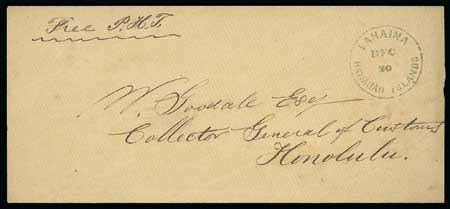 Free P.H.T.
LAHAINA
DEC
20
HAWAIIAN ISLANDS
W. Goodale Esq
Collector General of Customs
Honolulu.